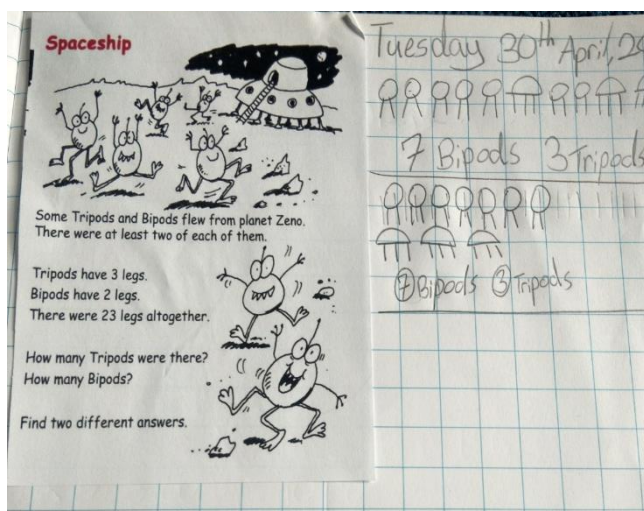 Spaceship
Some Tripods and Bipods flew from planet Zeno.
There were at least two of each of them.
Tripods have 3 legs.
Bipods have 2 legs.
There were 23 legs altogether.
How many Tripods were there?
How many Bipods?
Find two different answers.
Tuesday 30th April, 20
7 Bipods 3 Tripods
7 Bipods 3 Tripods